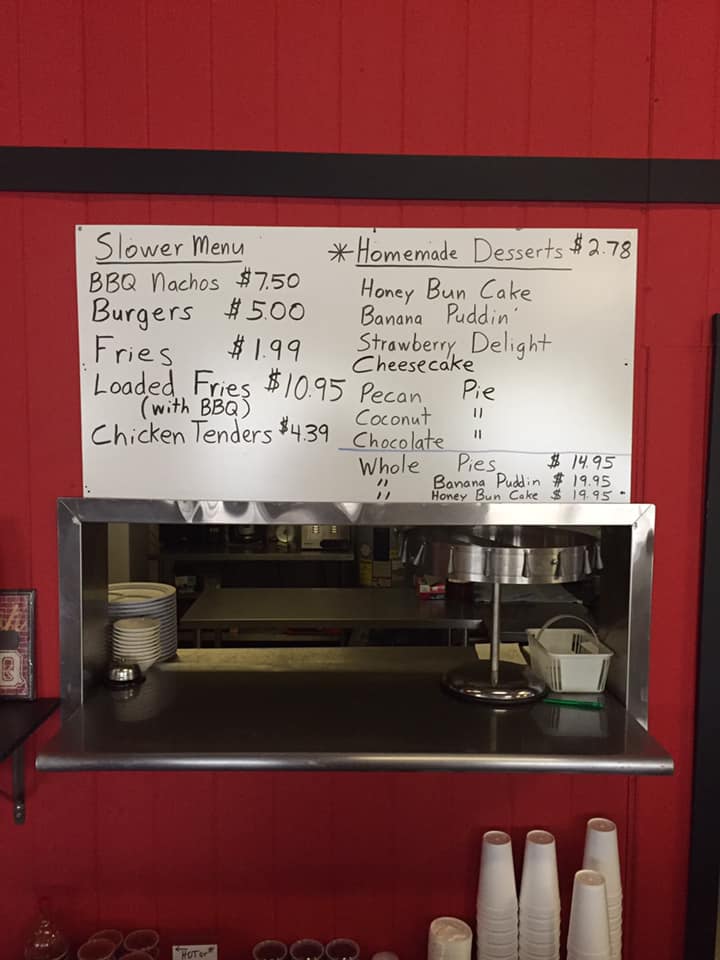 Slower Menu
BBQ Nachos $7.50
Burgers $5.00
Fries $1.99
Loaded Fries $10.95
(with BBQ)
Chicken Tenders $4.39
*Homemade Desserts $2.78
Honey Bun Cake
Banana Puddin'
Strawberry Delight
Cheesecake
Pecan Pie
Coconut "
Chocolate "
Whole Pies $14.95
" Banana Puddin $19.95
" Honey Bun Cake $19.95
"HOT or"